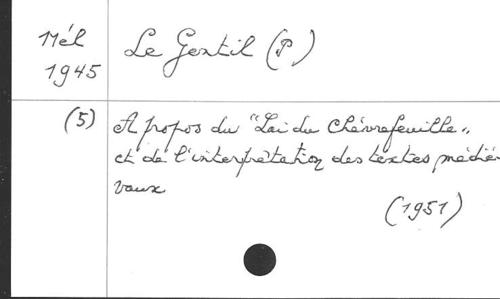 Mél
1945
Le Gentil (P)
(5)
A propos du "Lai du Chévrefeuille"
et de l'interprétation des textes médié-
vaux
(1951)